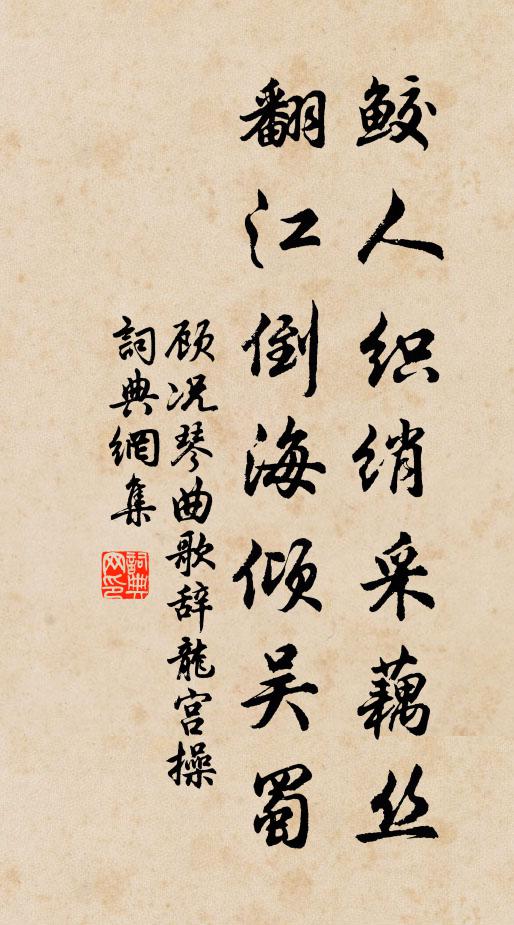 鲛人织绡采藕丝
翻江倒海倾吴蜀
顾况琴曲歌辞龍宫操
詞典網集
詞典网印